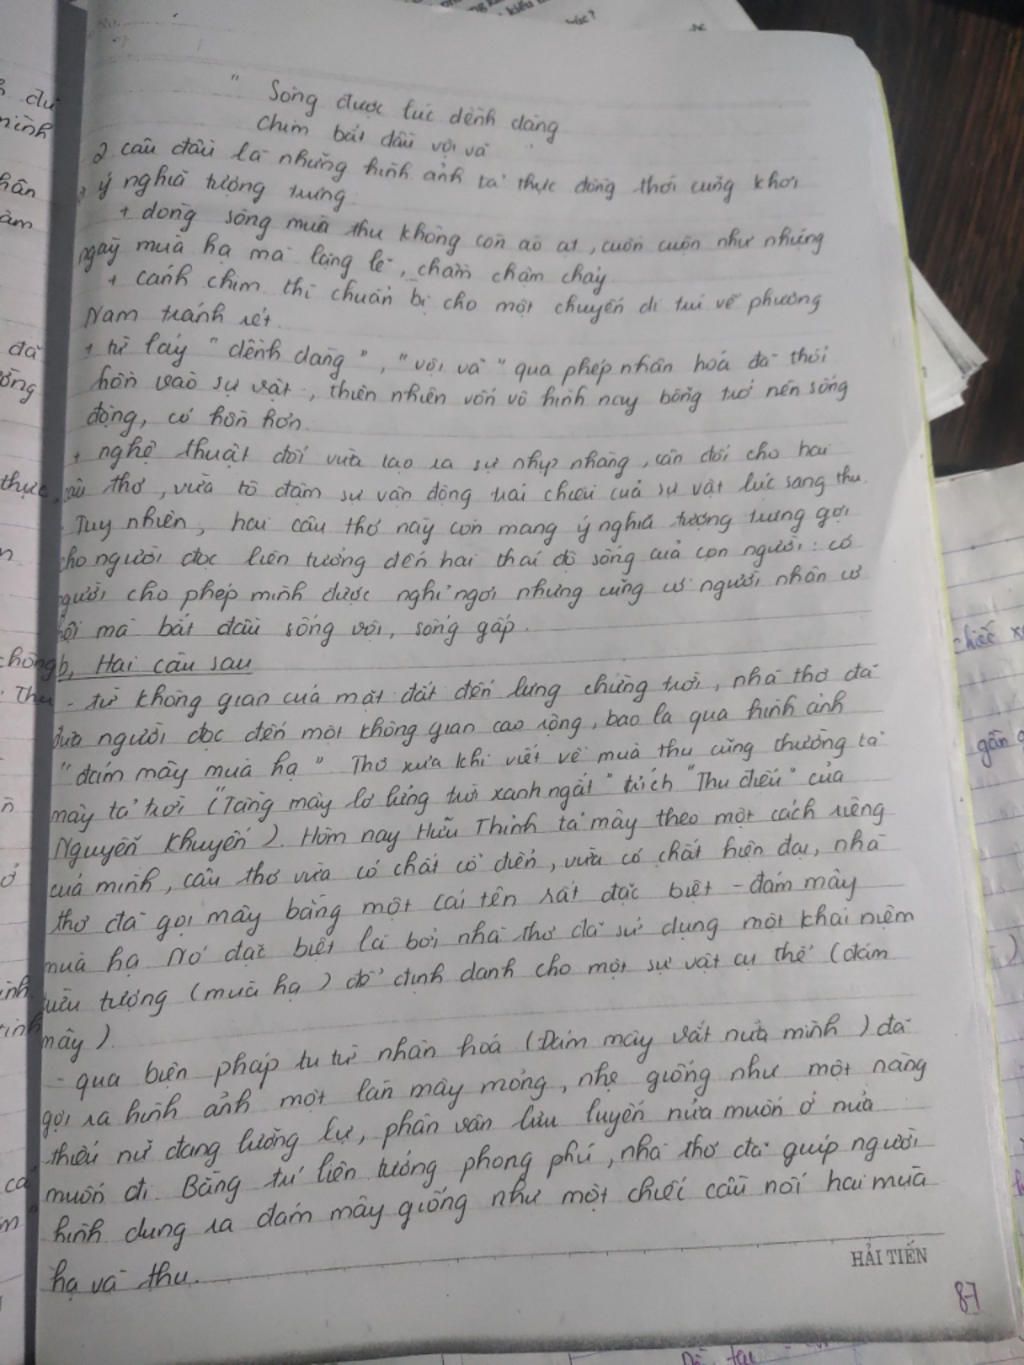 " Sông được lúc dềnh dàng
Chim bắt đầu vội vã
2 câu đầu là những hình ảnh tả thực đồng thời cũng khơi
ý nghĩa tượng trưng.
+ dòng sông mùa thu không còn ào ạt, cuồn cuộn như những
ngày mùa hạ mà lặng lẽ, chầm chậm chảy
+ cánh chim thì chuẩn bị cho một chuyến di trú về phương
Nam tránh rét.
+ từ láy " dềnh dàng ", " vội vã " qua phép nhân hoá đã thổi
hồn vào sự vật, thiên nhiên vốn vô hình nay bỗng trở nên sống
động, có hồn hơn.
+ nghệ thuật đối vừa tạo ra sự nhịp nhàng, cân đối cho hai
câu thơ, vừa tô đậm sự vận động trái chiều của sự vật lúc sang thu.
Tuy nhiên, hai câu thơ này còn mang ý nghĩa tượng trưng gợi
cho người đọc liên tưởng đến hai thái độ sống của con người : có
người cho phép mình được nghỉ ngơi nhưng cũng có người nhân cơ
hội mà bắt đầu sống vội, sống gấp.
b, Hai câu sau
- từ không gian của mặt đất đến lưng chừng trời, nhà thơ đã
đưa người đọc đến một không gian cao rộng, bao la qua hình ảnh
" đám mây mùa hạ " Thơ xưa khi viết về mùa thu cũng thường tả
mây tả trời ("Tầng mây lơ lửng trời xanh ngắt" trích "Thu điếu" của
Nguyễn Khuyến ). Hôm nay Hữu Thỉnh tả mây theo một cách riêng
của mình, câu thơ vừa có chất cổ điển, vừa có chất hiện đại, nhà
thơ đã gọi mây bằng một cái tên rất đặc biệt - đám mây
mùa hạ Nó đặc biệt là bởi nhà thơ đã sử dụng một khái niệm
trừu tượng (mùa hạ ) để định danh cho một sự vật cụ thể (đám
mây ).
- qua biện pháp tu từ nhân hoá (Đám mây vắt nửa mình ) đã
gợi ra hình ảnh một làn mây mỏng, nhẹ giống như một nàng
thiếu nữ đang lưỡng lự, phân vân lưu luyến nửa muốn ở nửa
muốn đi. Bằng trí liên tưởng phong phú, nhà thơ đã giúp người
hình dung ra đám mây giống như một chiếc cầu nối hai mùa
hạ và thu.
HẢI TIẾN
87